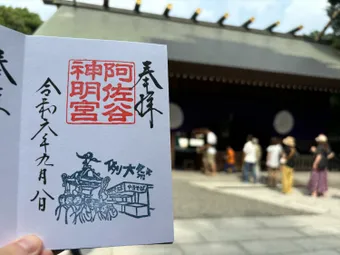 奉拝
阿佐谷
神明宮
令和六年九月八日
例大祭